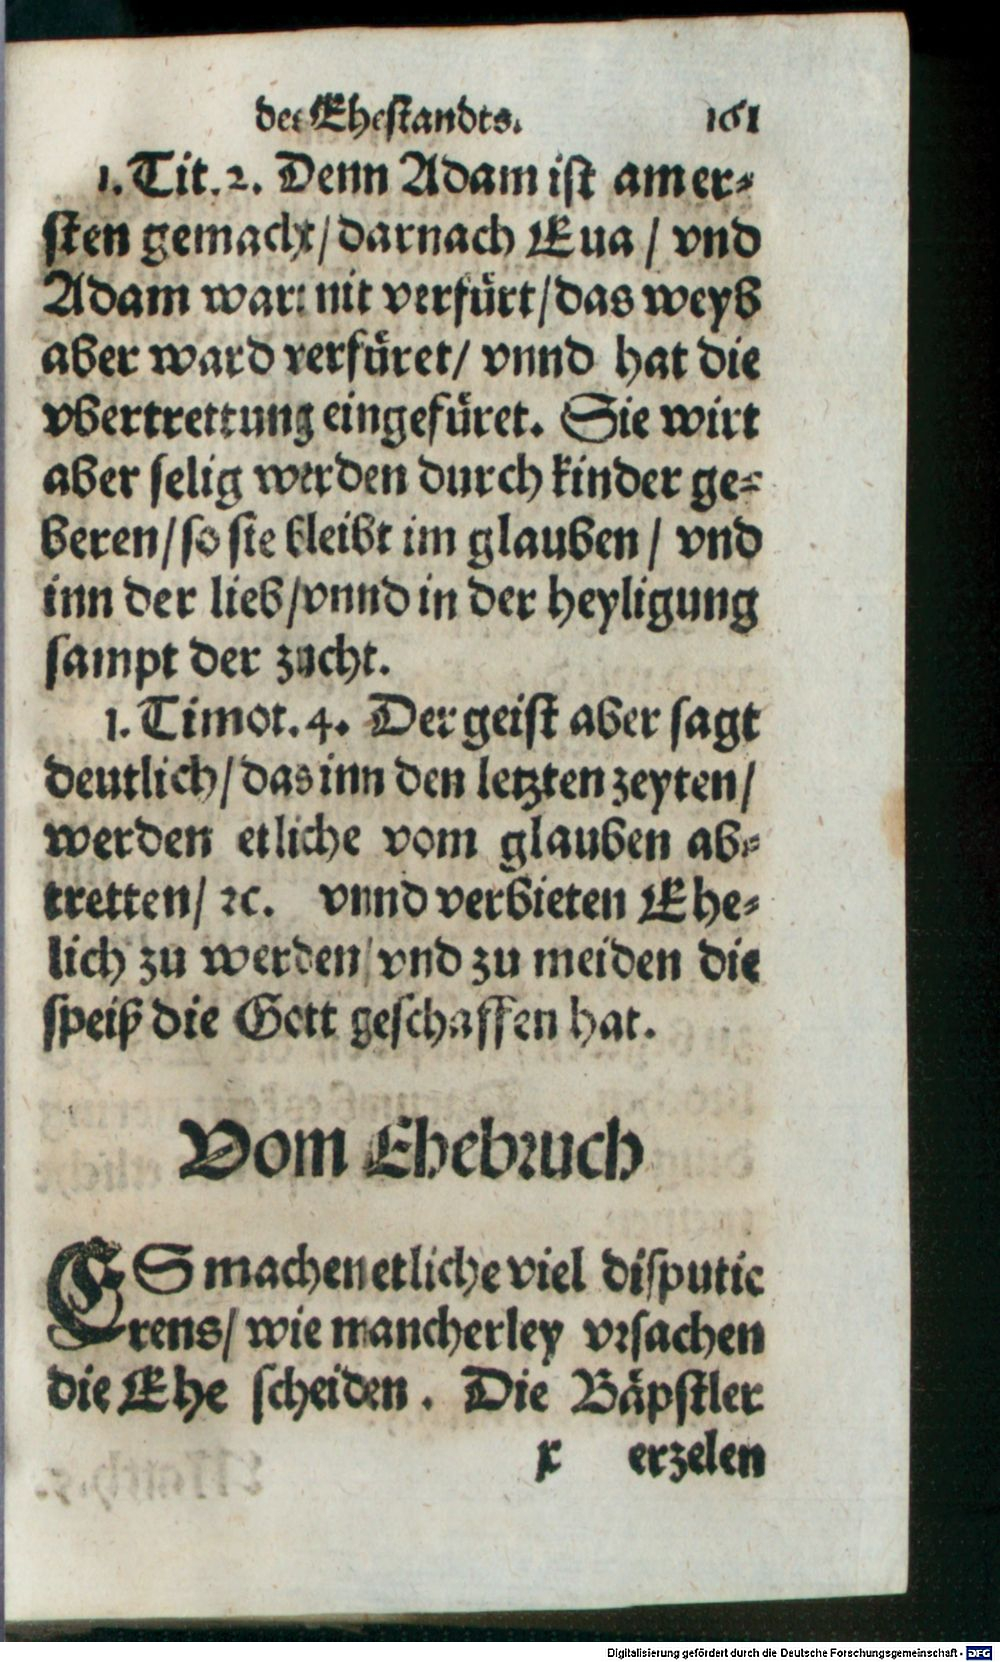 des Ehestandts. 161
1. Tit. 2. Denn Adam ist am er-
sten gemacht/ darnach Eua/ vnd
Adam wart nit verfürt/ das weyb
aber ward verfüret/ vnnd hat die
vbertrettung eingefüret. Sie wirt
aber selig werden durch kinder ge-
beren/ so sie bleibt im glauben/ vnd
inn der lieb/ vnnd in der heyligung
sampt der zucht.
1. Timot. 4. Der geist aber sagt
deutlich/ das inn den letzten zeyten/
werden etliche vom glauben ab-
tretten/ ꝛc. vnnd verbieten Ehe-
lich zu werden/ vnd zu meiden die
speiß die Gott geschaffen hat.
Vom Ehebruch
ES machen etliche viel disputie
rens/ wie mancherley vrsachen
die Ehe scheiden. Die Bäpstler
x erzelen
Digitalisierung gefördert durch die Deutsche Forschungsgemeinschaft - DFG